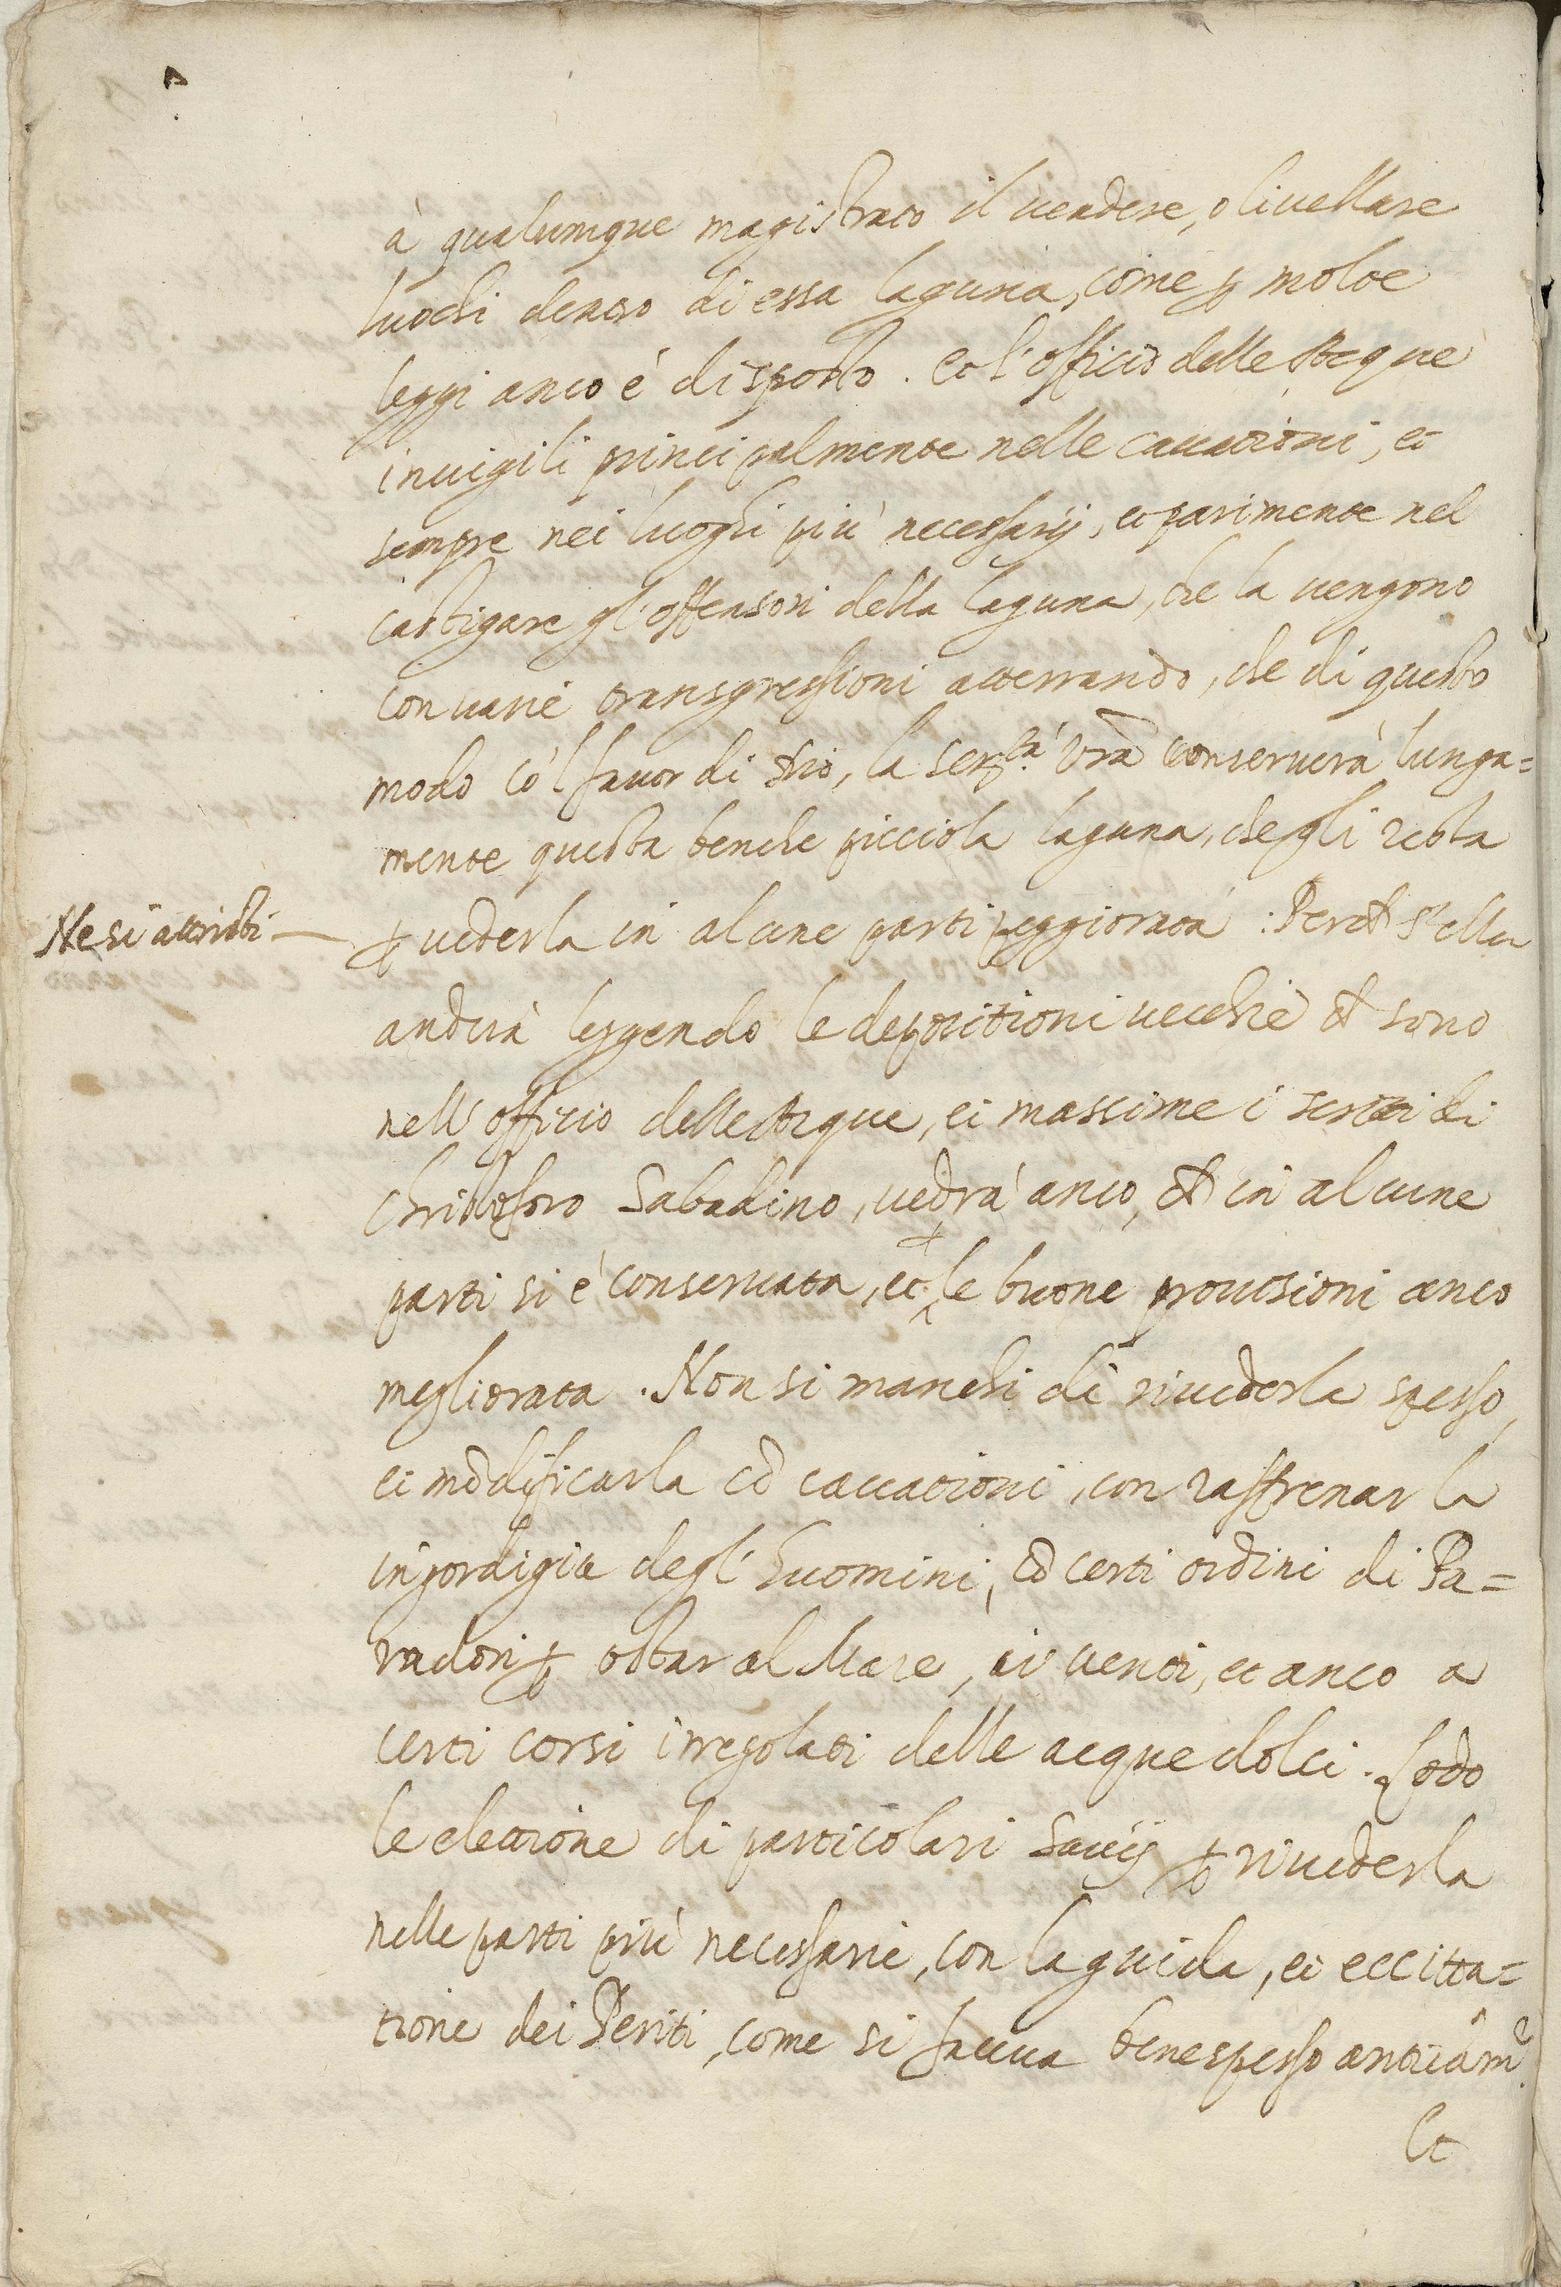 à qualumque magistrato il vendere, o livellare
luochi dentro di essa laguna, come ꝑ molte
leggi anco è disposto. Et l'officio delle Acque
invigili principalmente nelle cavationi, et
sempre nei luoghi più necessarij, et parimente nel
castigare gl'offensori della laguna, che la vengono
con varie transgressioni atterrando, che di questo
modo cō'l favor di Dio, la Ser.tà Vrā conserverà lunga=
mente questa benche picciola laguna, che gli resta
Ne si attristi — ꝑ vederla in alcune parti peggiorata: Perchè s'ella
anderà leggendo le depositioni vecchie che sono
nell'officio delle Acque, et massime i scritti di
Christoforo Sabadino, vedrà anco, che in alcune
parti si è conservata, et ꝑ le buone provisioni anco
megliorata. Non si manchi di rivederla spesso,
et mōdificarla cō cavationi, con raffrenar la
ingordigia degl'huomini, cō certi ordini di Pa=
radori ꝑ ostar al Mare, ai venti, et anco a
certi corsi irregolati delle acque dolci. Lodo
le elettione di particolari Savij ꝑ rivederla
nelle parti più necessarie, con la guida, et eccitta=
tione dei Periti, come si faceva bene spesso anticam.e
Et